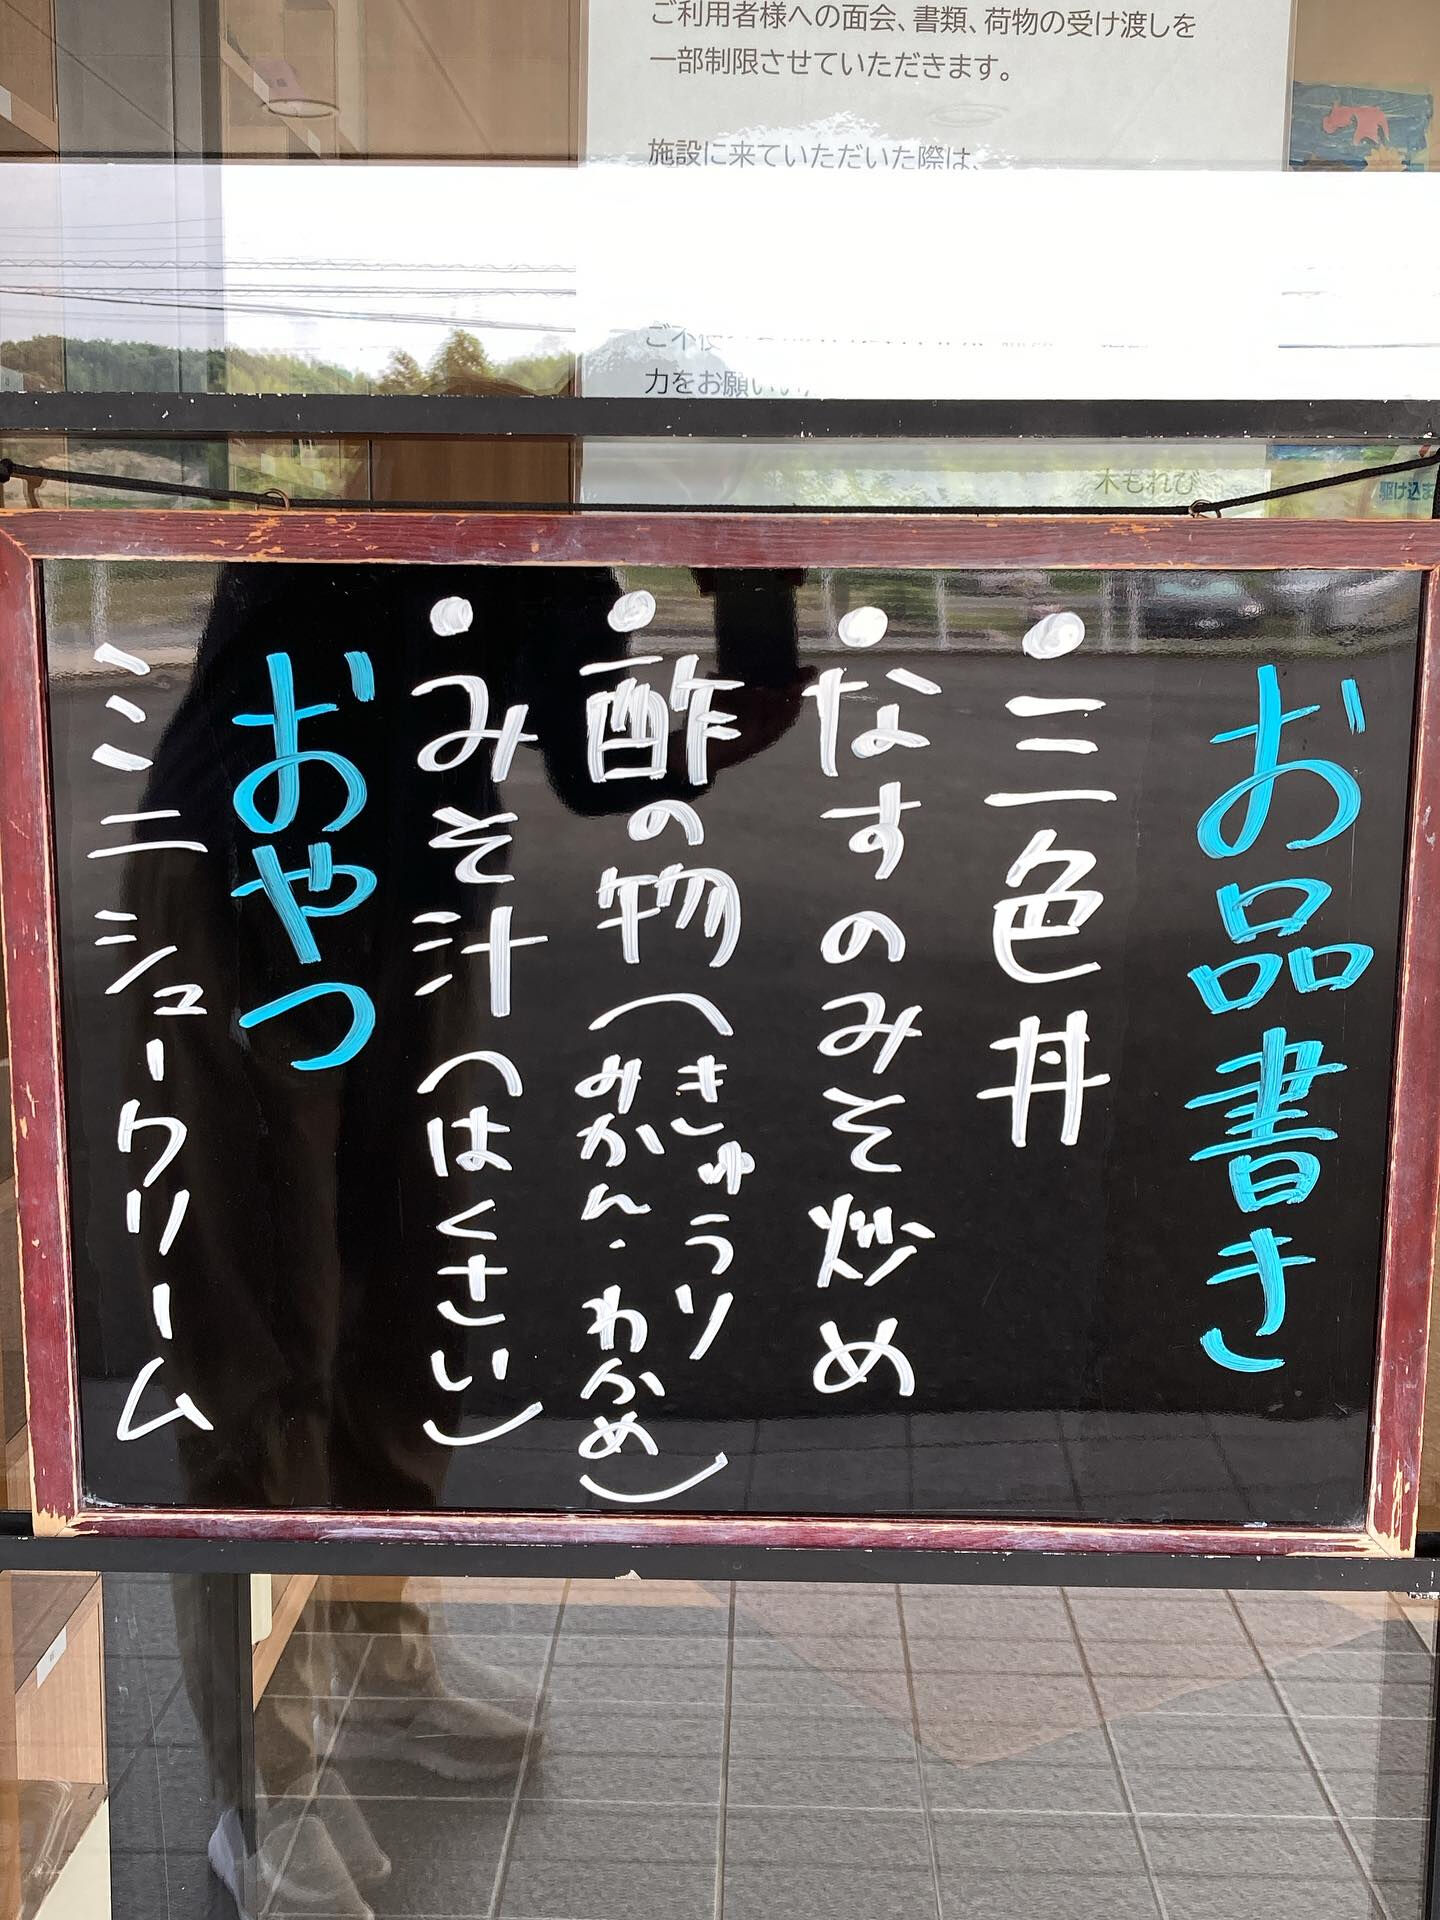 ご利用者様への面会、書類、荷物の受け渡しを
一部制限させていただきます。
施設に来ていただいた際は、
力をお願いい
木もれび
駆け込ま
お品書き
・三色丼
・なすのみそ炒め
・酢の物(きゅうり
みかん・わかめ)
・みそ汁(はくさい)
おやつ
ミニシュークリーム